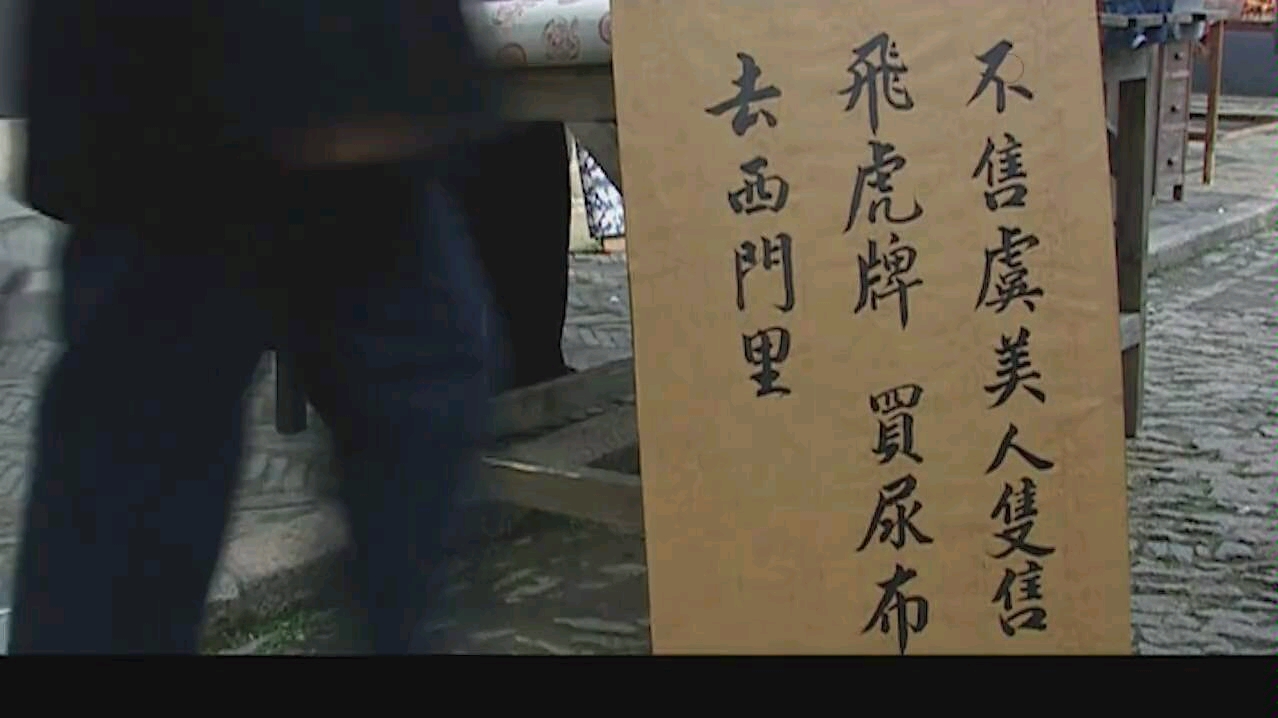 不售虞美人隻售
飛虎牌 買尿布
去西門里